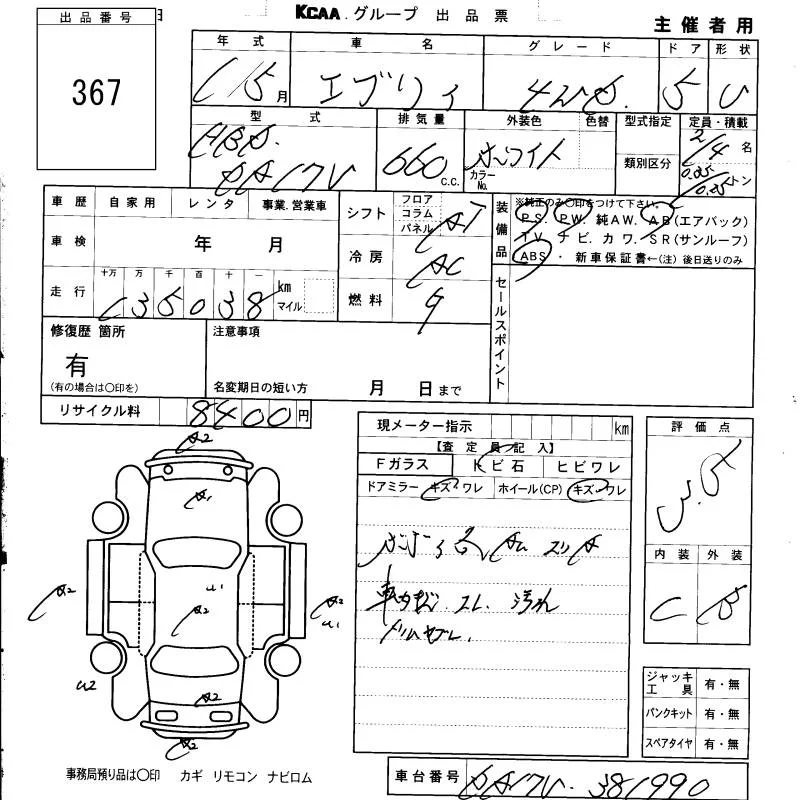 KCAA.グループ 出品票
出品番号
主催者用
367
年式 車名 グレード ドア 形状
15月 エブリィ 4WD. 5 V
型式 排気量 外装色 色替 型式指定 定員・積載
HBD. DA17V 660 c.c. ホワイト カラーNo. 類別区分 2/4名 トン
車歴 自家用 レンタ 事業.営業車
シフト フロア コラム パネル AT
装備品 ※純正のみ〇印をつけて下さい。
PS. PW. 純AW. AB(エアバック)
TV ナビ. カワ. SR(サンルーフ)
ABS ・ 新車保証書←(注)後日送りのみ
車検 年 月
冷房 AC
走行 十万 万 千 百 十 一 km マイル
135038
燃料 G
セールスポイント
修復歴 箇所
有
(有の場合は〇印を)
注意事項
名変期日の短い方 月 日まで
リサイクル料 8400円
現メーター指示 km
【査定員記入】
Fガラス トビ石 ヒビワレ
ドアミラー キズ・ワレ ホイール(CP) キズ・ワレ
汚れ
評価点
3.5
内装 外装
C B
A2
A1
A2
U1
A2
A2
U1
U2
A2
A2
ジャッキ工具 有・無
パンクキット 有・無
スペアタイヤ 有・無
事務局預り品は〇印 カギ リモコン ナビロム
車台番号 DA17V-381990